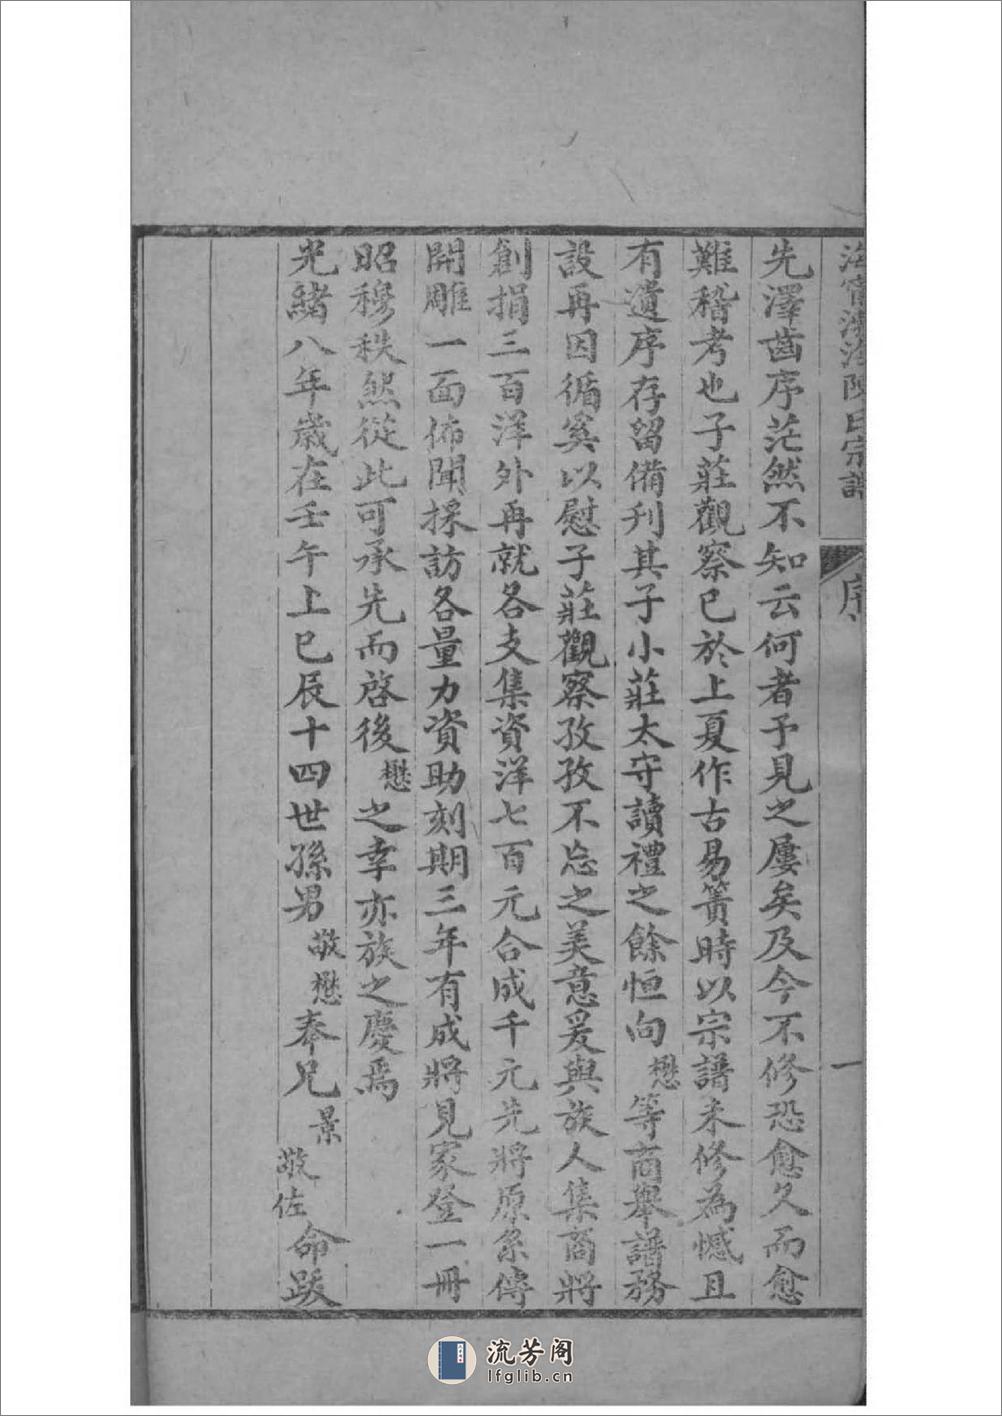 海寧渤海陳氏宗譜 序 一
先澤茵序茫然不知云何者予見之屢矣及今不修恐愈久而愈
難稽考也子莊觀察已於上夏作古易簀時以宗譜未修為憾且
有遺序存留備刊其子小莊太守讀禮之餘恒向懋等商舉譜務
設再因循奚以慰子莊觀察孜孜不忘之美意爰與族人集商將
創捐三百洋外再就各支集資洋七百元合成千元先將原系傳
開雕一面佈聞採訪各量力資助刻期三年有成將見家登一冊
昭穆秩然從此可承先而啓後懋之幸亦族之慶焉
光緒八年歲在壬午上巳辰十四世孫男敬懋奉兄景敬佐命跋
流芳阁
lfglib.cn